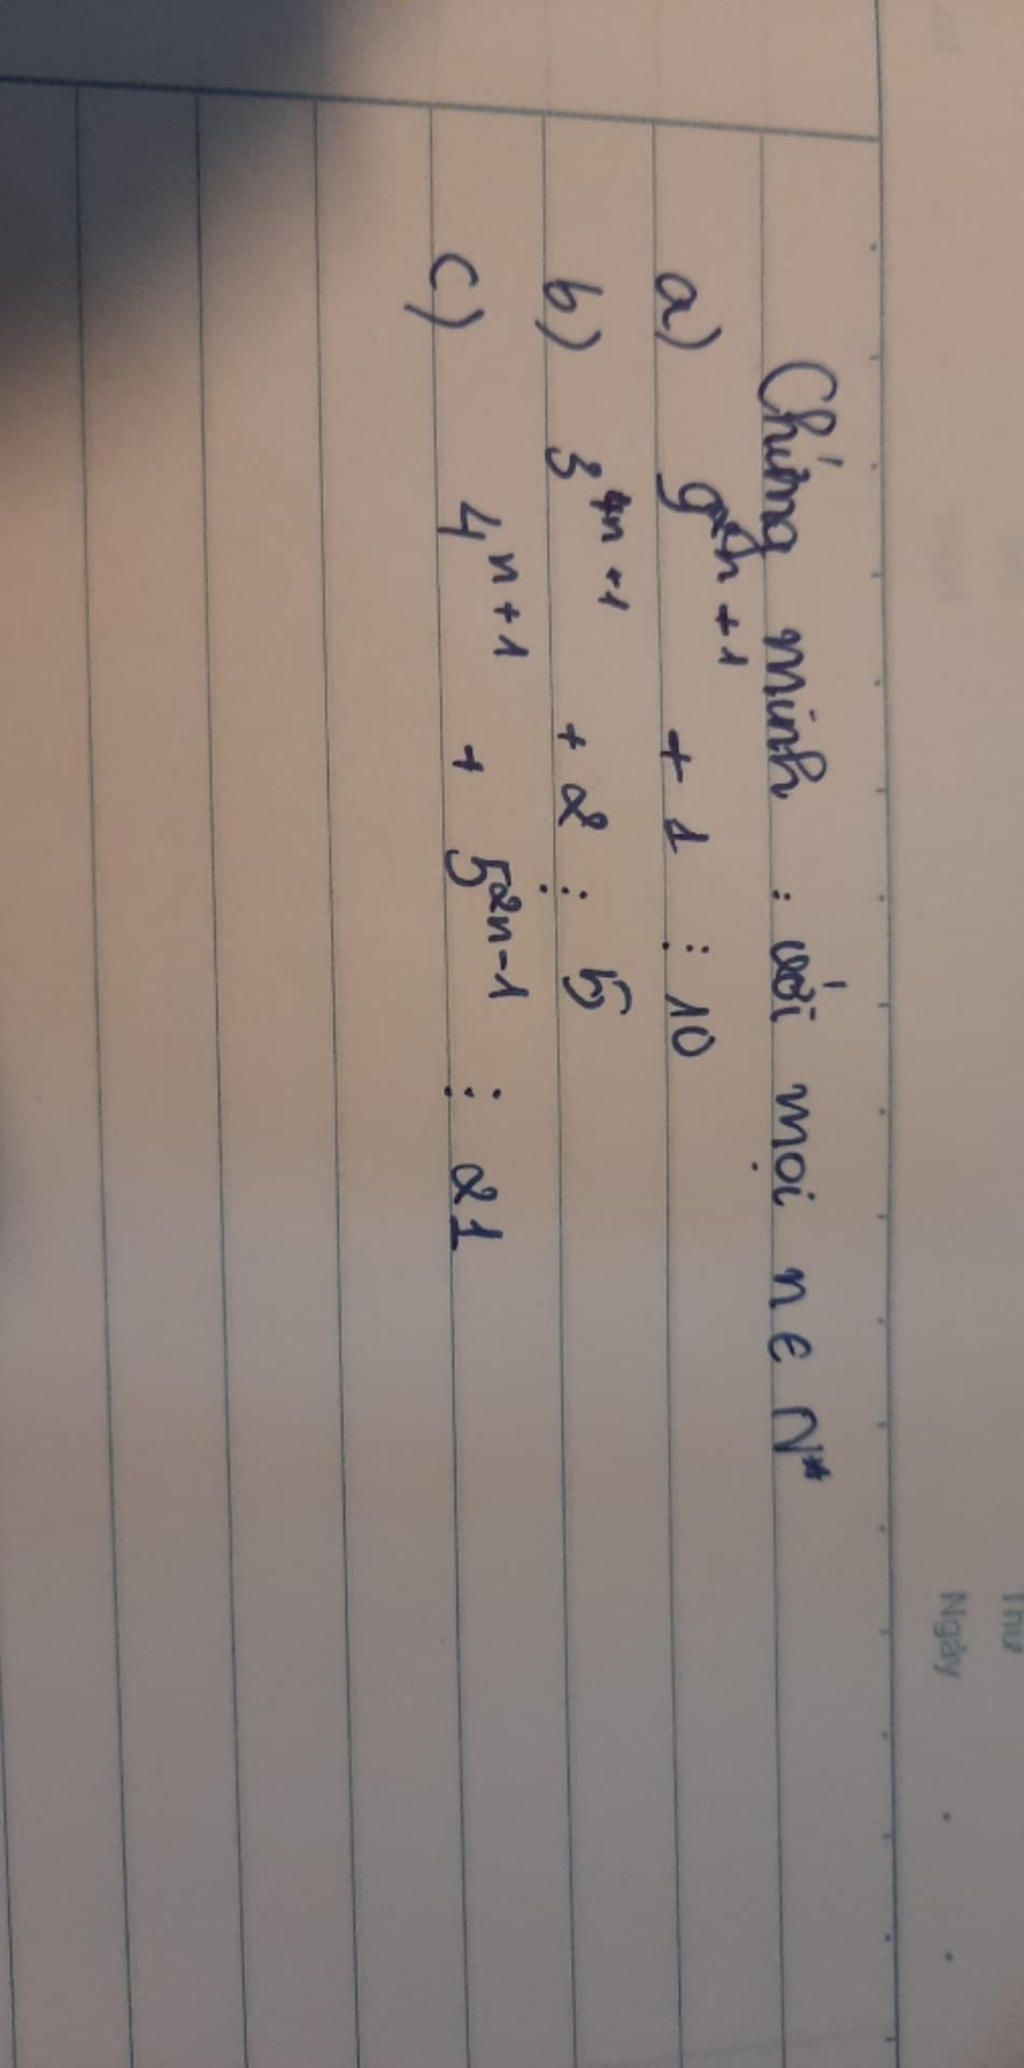 Thứ
Ngày
Chứng minh : với mọi n ∈ N*
a) 9²ⁿ⁺¹ + 1 ⋮ 10
b) 3⁴ⁿ⁺¹ + 2 ⋮ 5
c) 4ⁿ⁺¹ + 5²ⁿ⁻¹ ⋮ 21